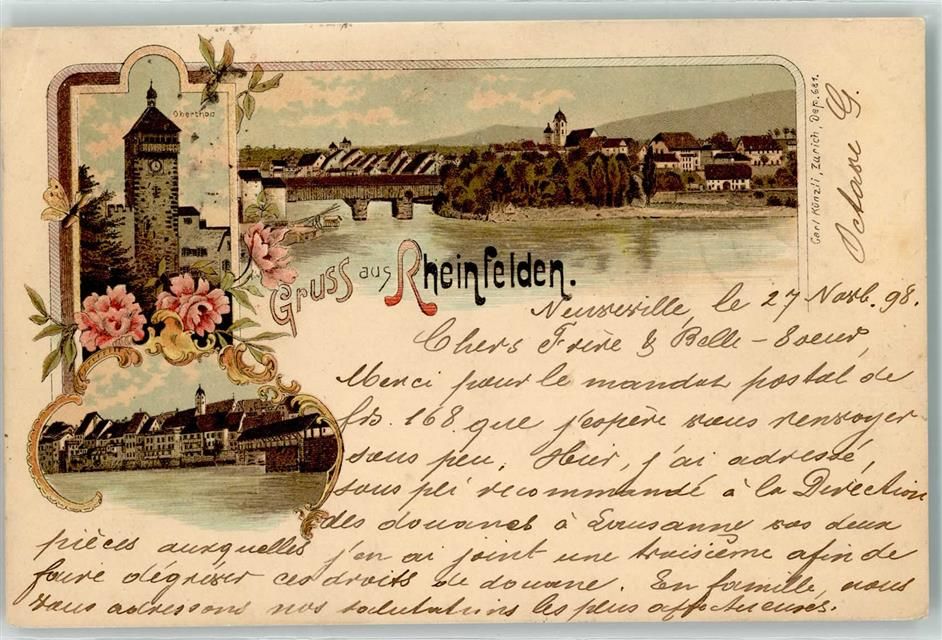 Oberthor
Gruss aus Rheinfelden.
Carl Künzli, Zürich, Dep. 681.
Octave G.
Neuveville, le 27 Novb. 98.
Chers Frère & Belle-Soeur,
Merci pour le mandat postal de
frs. 168 que j'espère vous renvoyer
sous peu. Hier, j'ai adressé,
sous pli recommandé à la Direction
des douanes à Lausanne vos deux
pièces auxquelles j'en ai joint une troisième afin de
faire dégréver ces droits de douane. En famille, nous
vous adressons nos salutations les plus affectueuses.